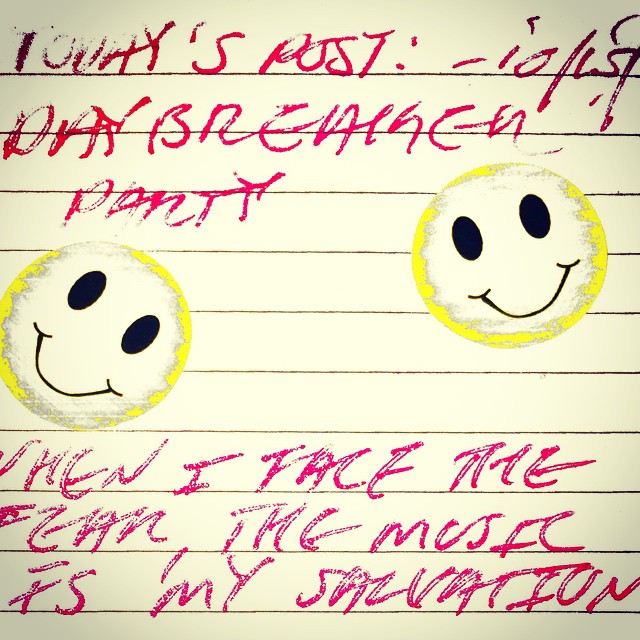 TODAY'S POST: -10/15/
DAYBREAKER
PARTY
WHEN I FACE THE
FEAR THE MUSIC
IS MY SALVATION